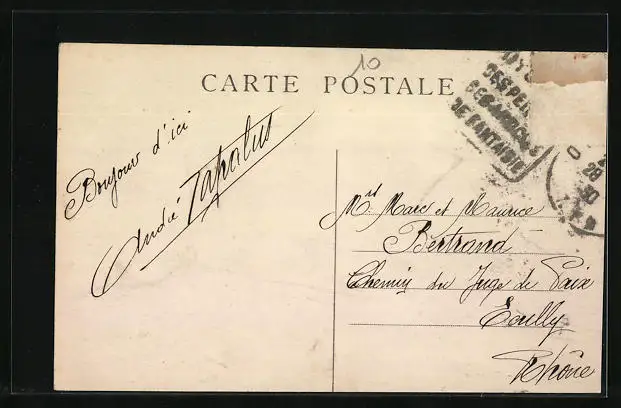 10
CARTE POSTALE
Bonjour d'ici
André Tapalus
DE FANTAISIE
28
30
Mrs. Marc et Maurice
Bertrand
Chemin du Juge de Paix
Ecully
Rhône